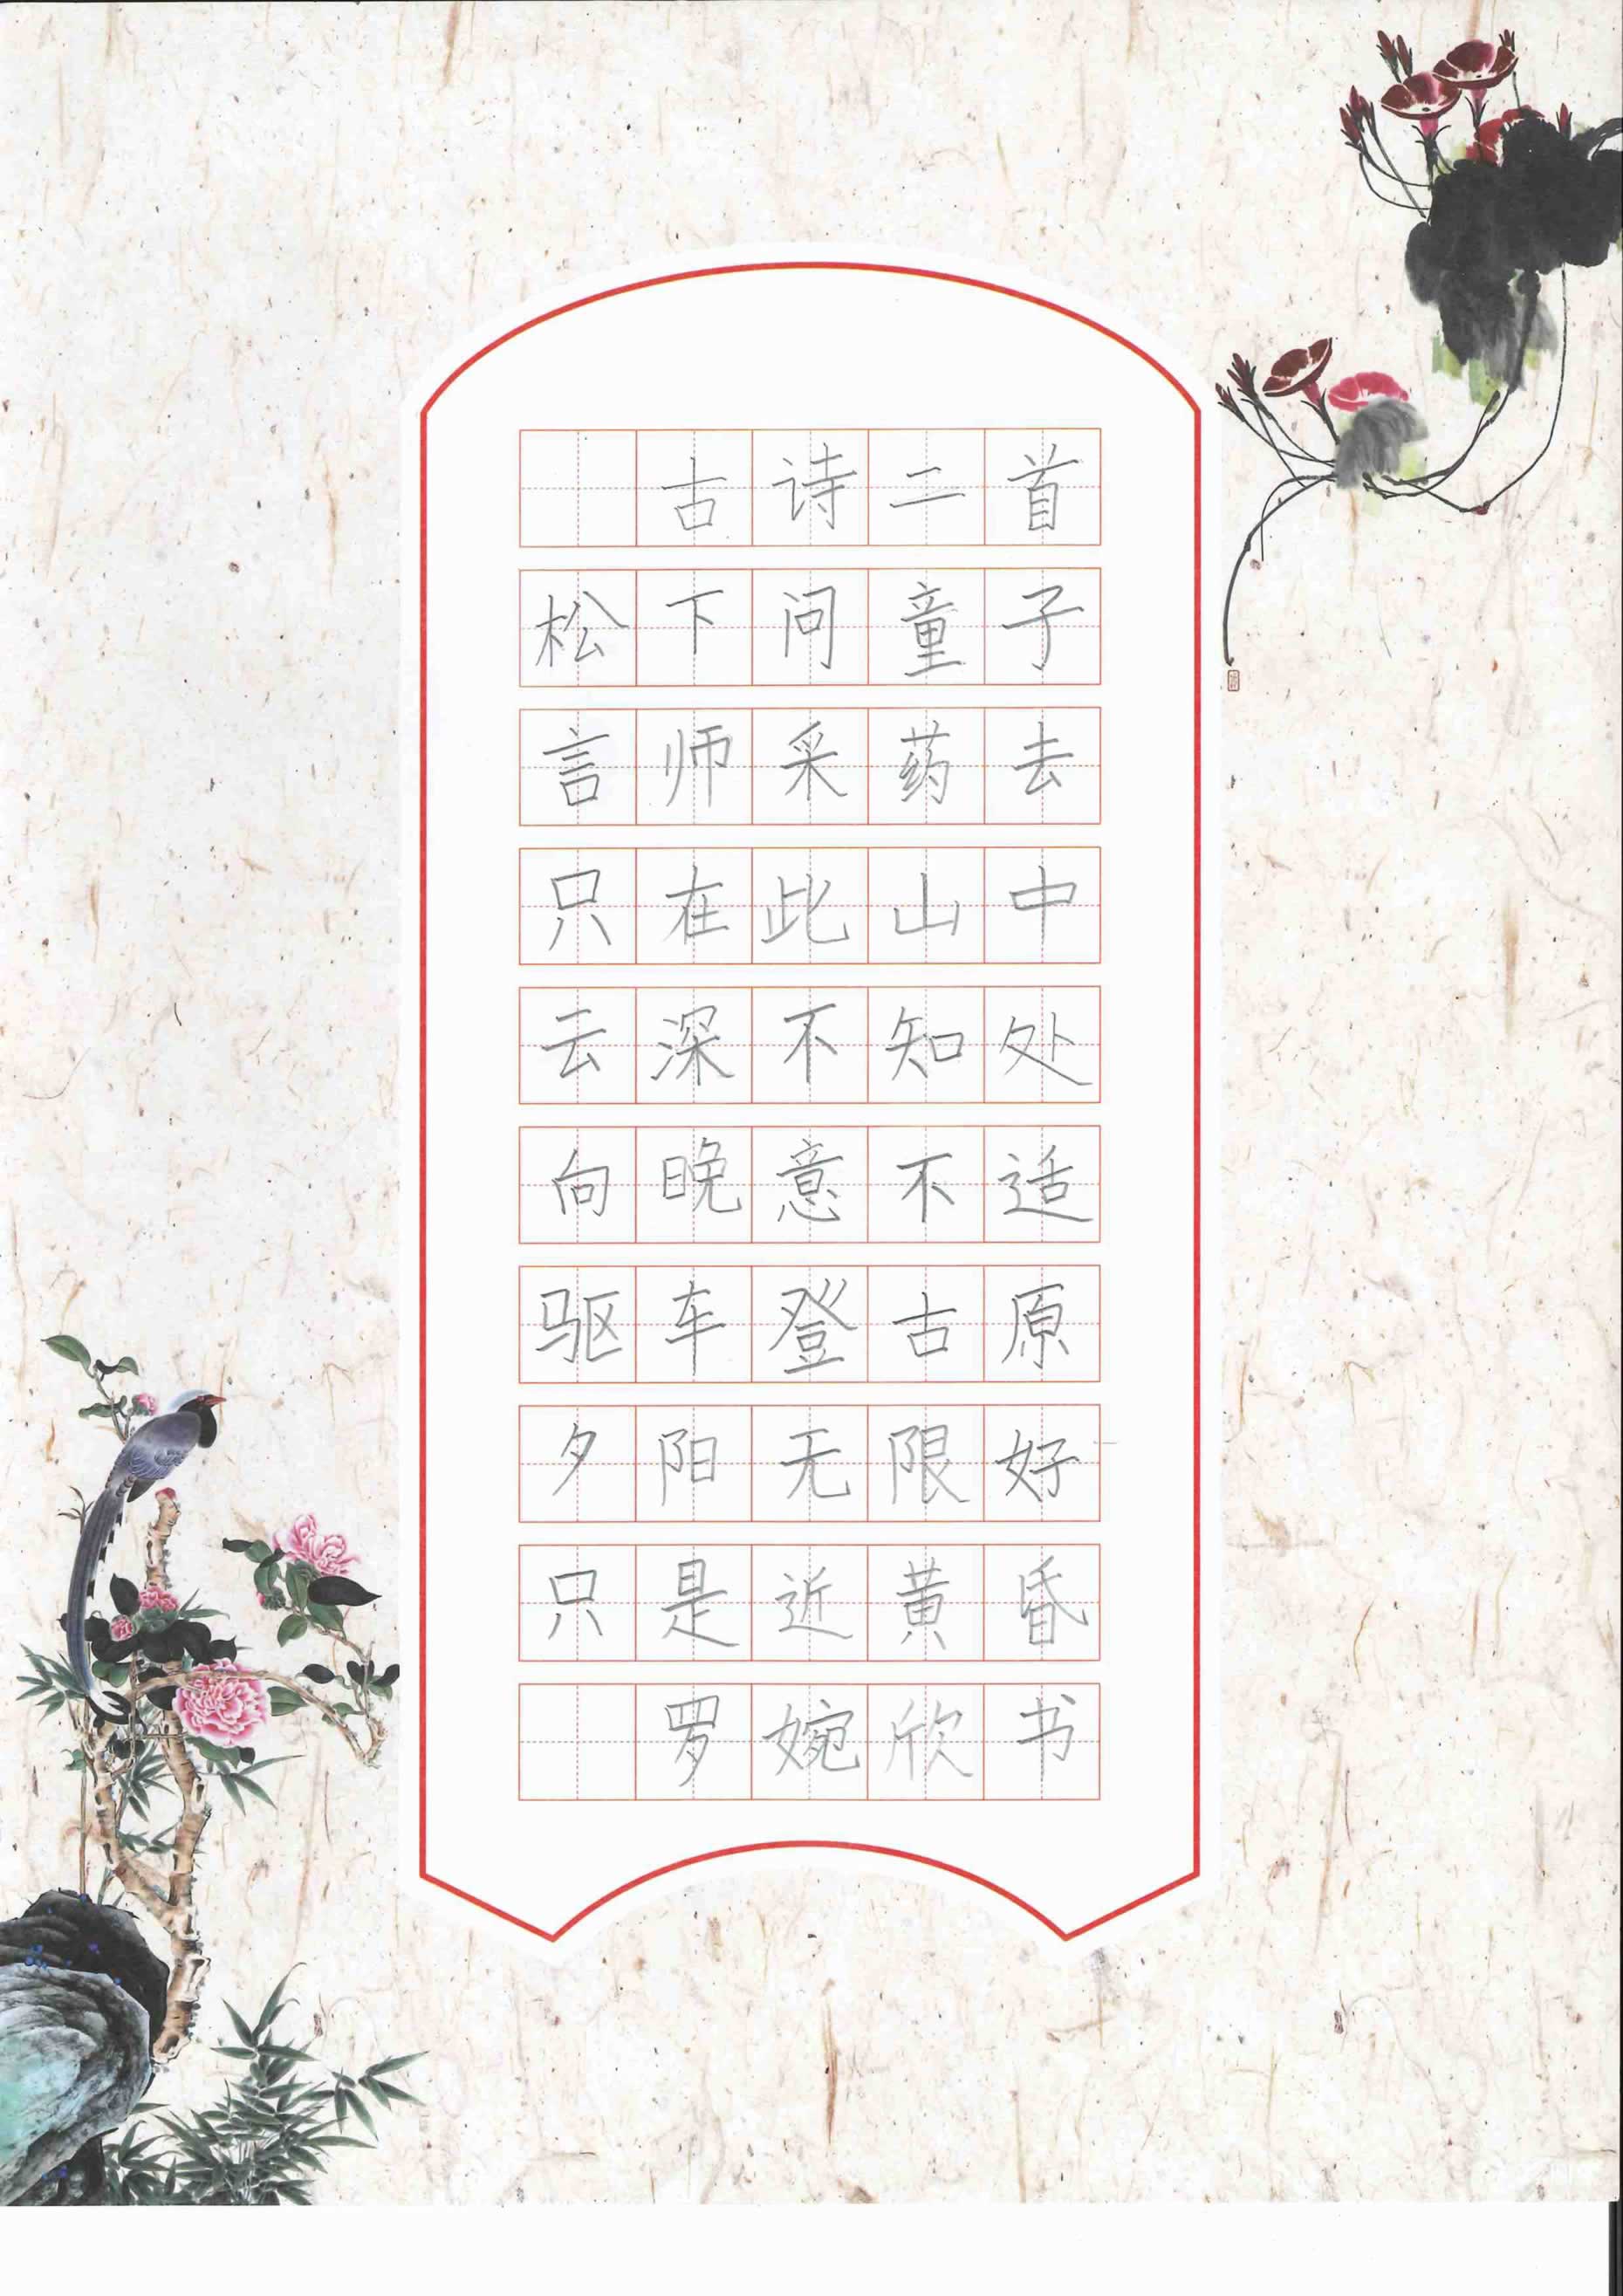 古诗二首
松下问童子
言师采药去
只在此山中
云深不知处
向晚意不适
驱车登古原
夕阳无限好
只是近黄昏
罗婉欣书